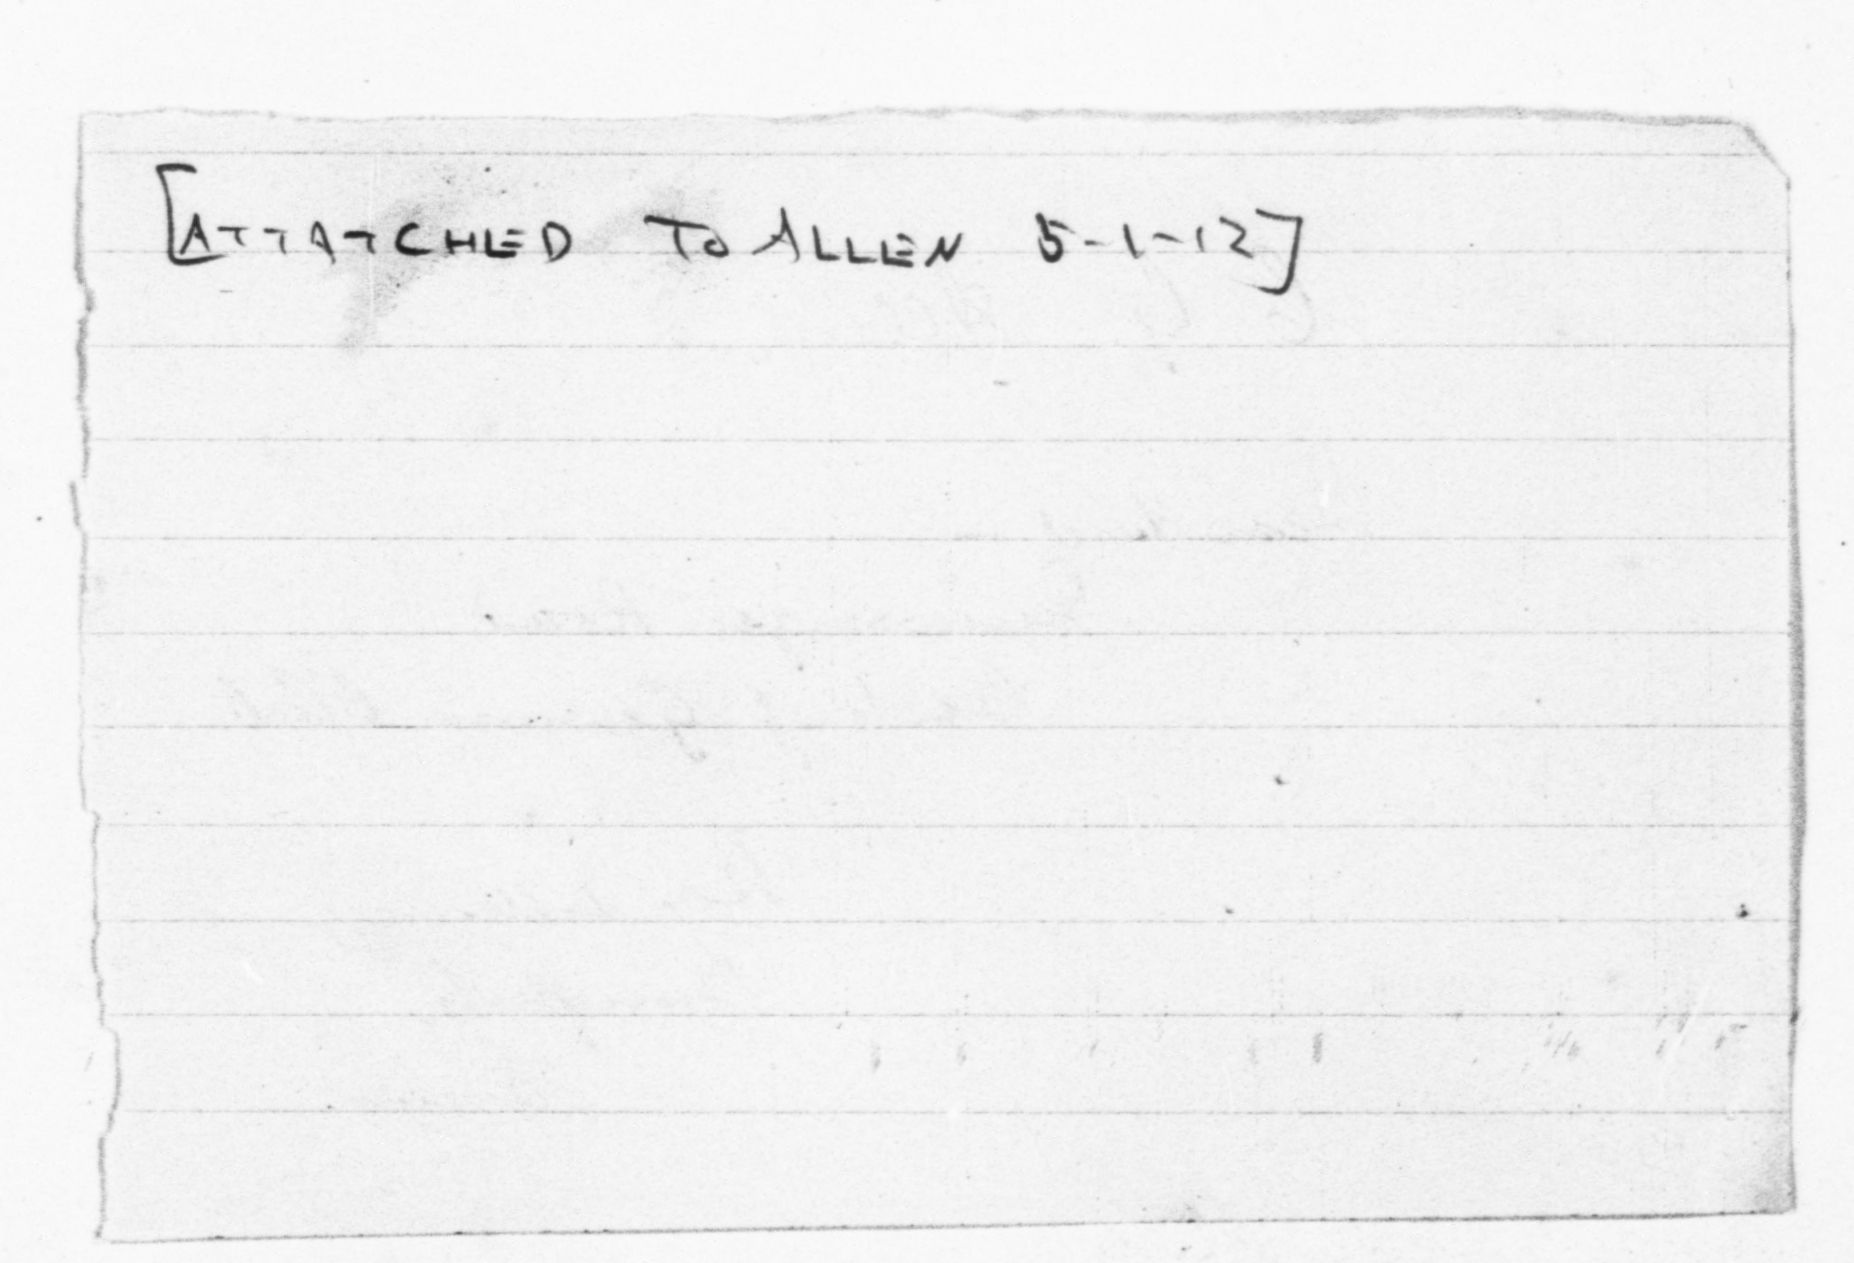 [ATTATCHED TO ALLEN 5-1-12]